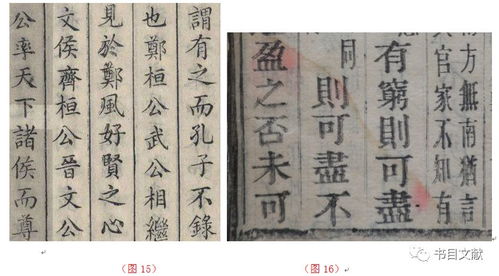 謂有之而孔子不錄
也鄭桓公武公相繼
見於鄭風好賢之心
文侯齊桓公晉文公
公率天下諸侯而尊
(图15)
南方無南猶言
官家不知有
有窮則可盡
同
則可盡不
盈之否未可
(图16)
书目文献